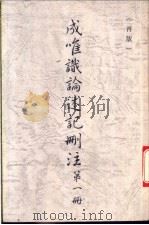 （再版）
成唯識論述記刪注 第一册